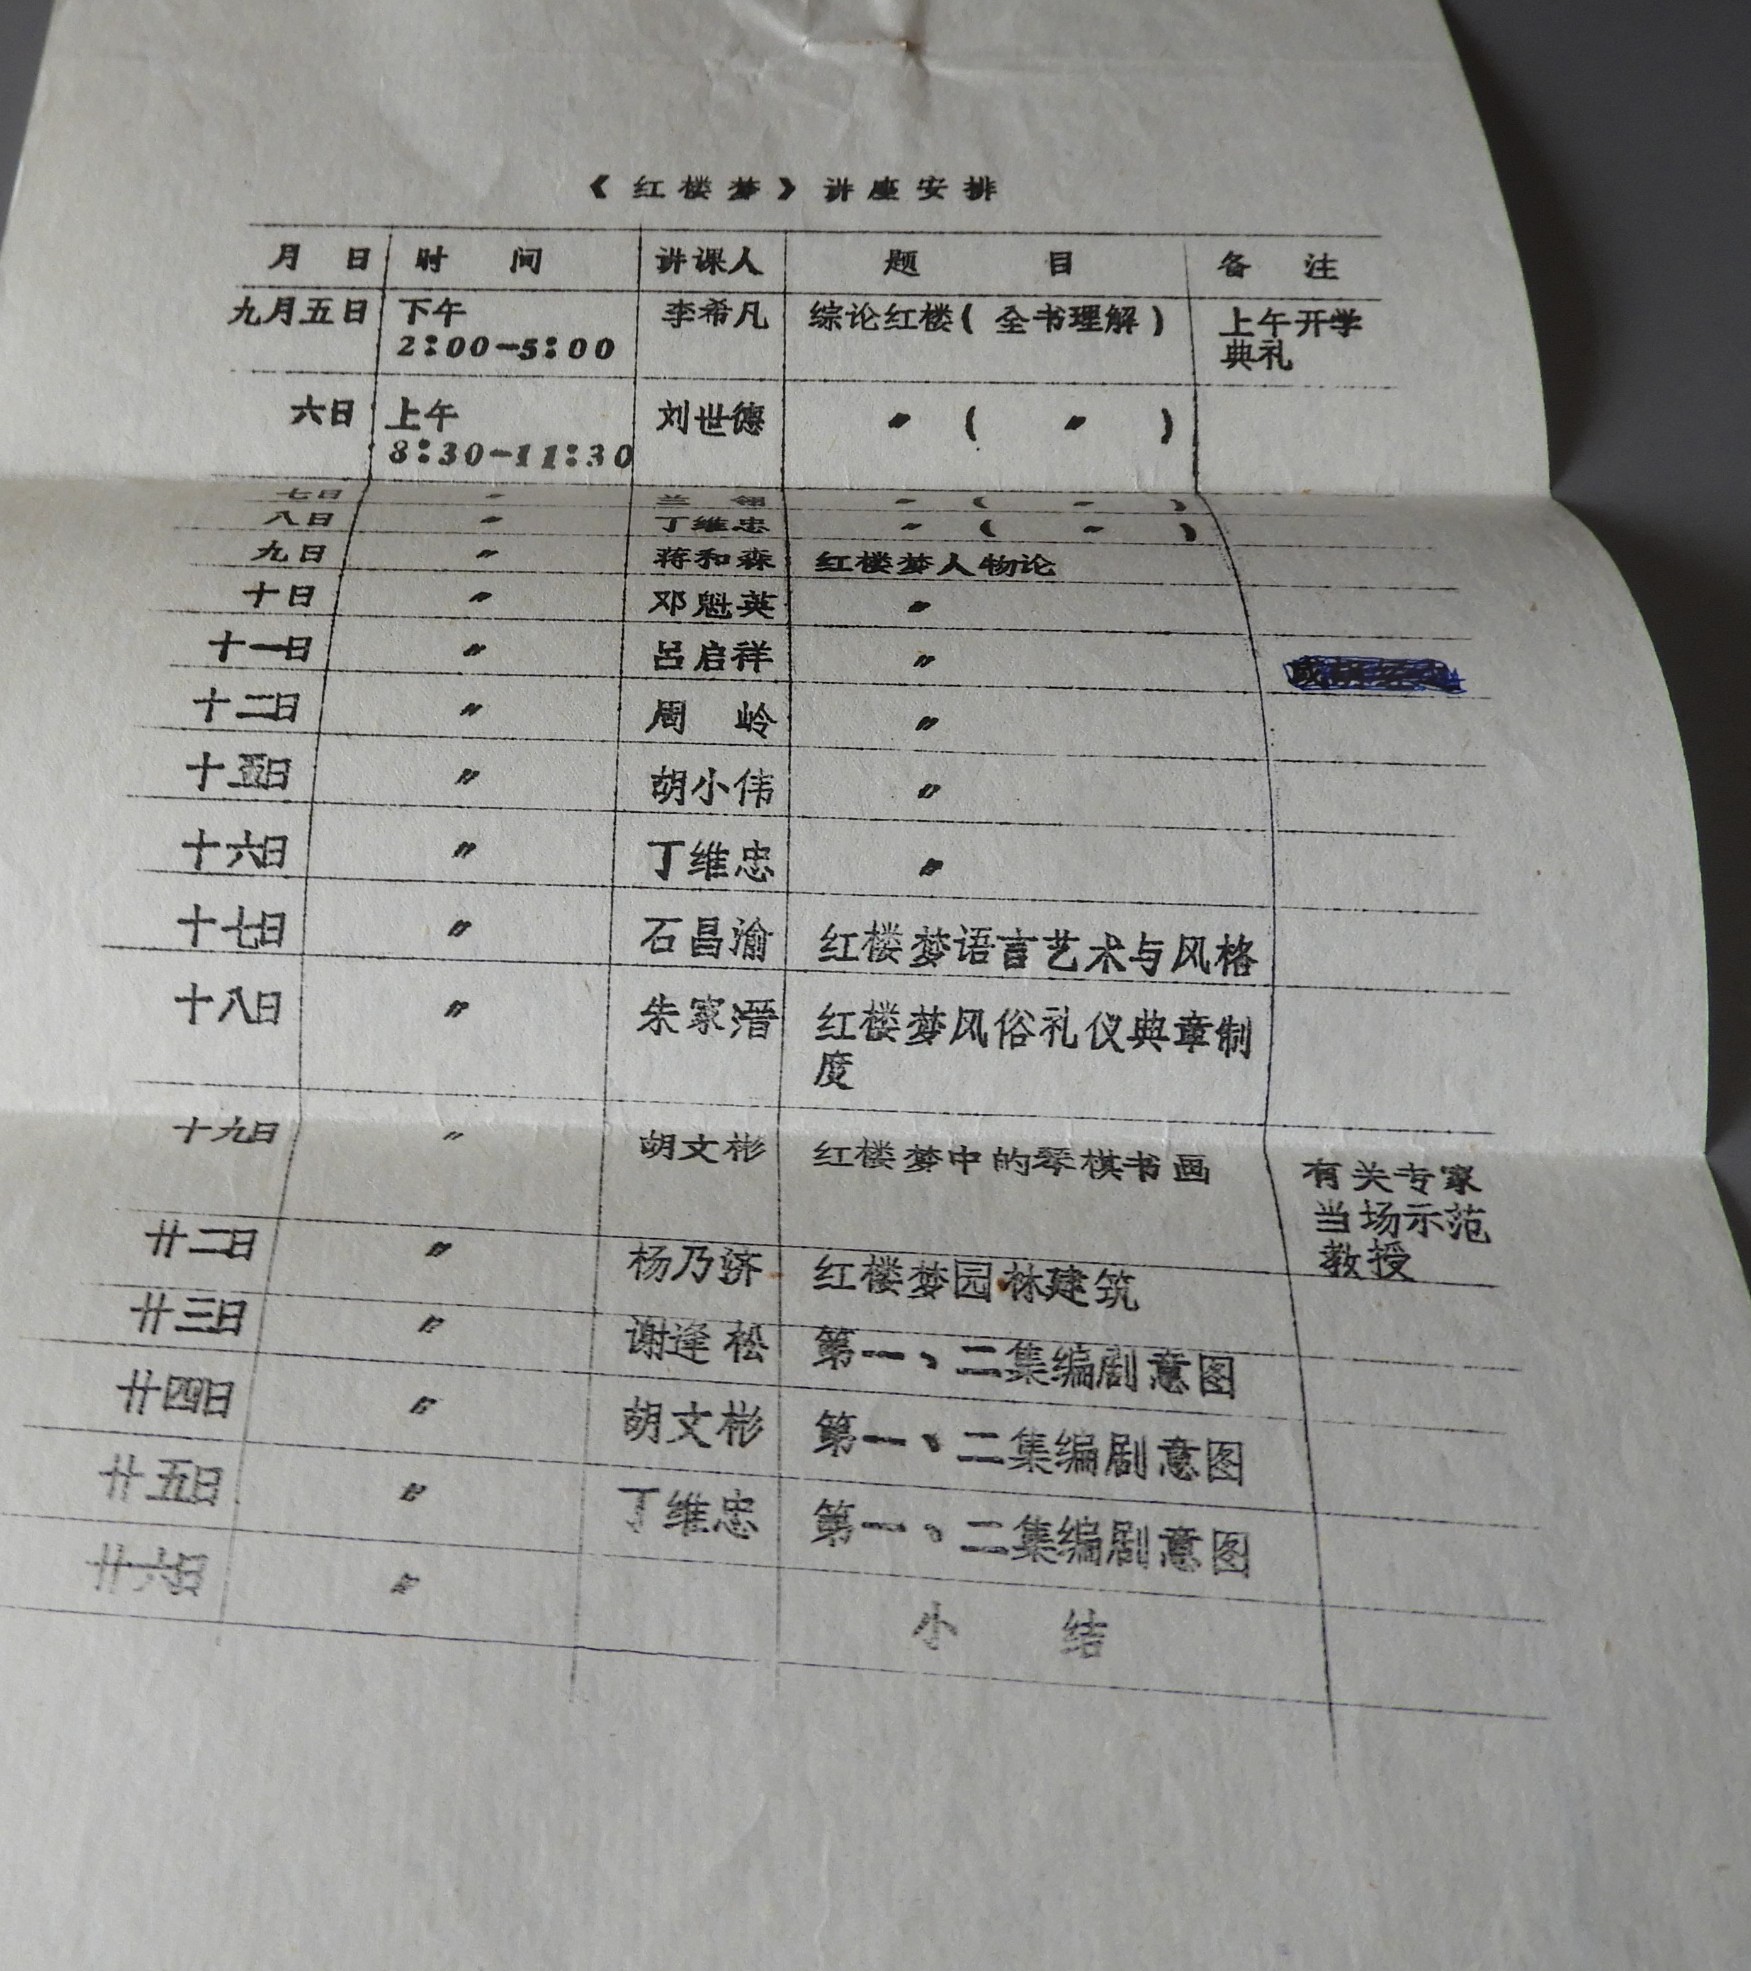 《红楼梦》讲座安排
月 日 时 间 讲课人 题 目 备 注
九月五日 下午 2:00-5:00 李希凡 综论红楼(全书理解) 上午开学典礼
六日 上午 8:30-11:30 刘世德 〃(〃)
七日 〃 兰 翎 〃(〃)
八日 〃 丁维忠 〃(〃)
九日 〃 蒋和森 红楼梦人物论
十日 〃 邓魁英 〃
十一日 〃 吕启祥 〃
十二日 〃 周 岭 〃
十五日 〃 胡小伟 〃
十六日 〃 丁维忠 〃
十七日 〃 石昌渝 红楼梦语言艺术与风格
十八日 〃 朱家溍 红楼梦风俗礼仪典章制度
十九日 〃 胡文彬 红楼梦中的琴棋书画 有关专家当场示范教授
廿二日 〃 杨乃济 红楼梦园林建筑
廿三日 〃 谢逢松 第一、二集编剧意图
廿四日 〃 胡文彬 第一、二集编剧意图
廿五日 〃 丁维忠 第一、二集编剧意图
廿六日 〃 小 结